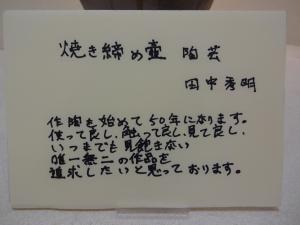 焼き締め壷 陶芸
田中秀明
作陶を始めて50年になります。
使って良し、触って良し、見て良し、
いつまでも見飽きない
唯一無二の作品を
追求したいと思っております。